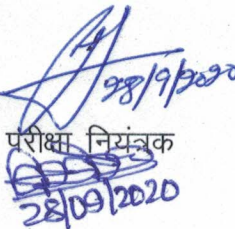 28/9/2020
परीक्षा नियंत्रक
28/09/2020